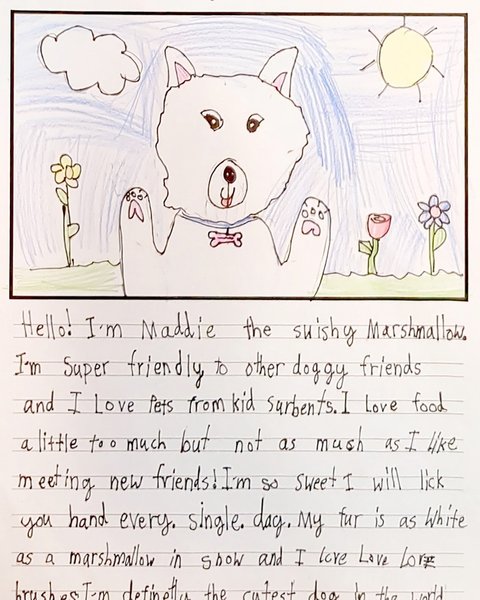 Hello! I'm Maddie the suishy Marshmallow.
I'm Super friendly to other doggy friends
and I Love Pets from kid Surbents. I Love food
a little too much but not as mush as I like
meeting new friends! I'm so sweet I will lick
you hand every. single. day. My fur is as white
as a marshmallow in snow and I love Love Love
brushes I'm definetly the cutest dog in the world